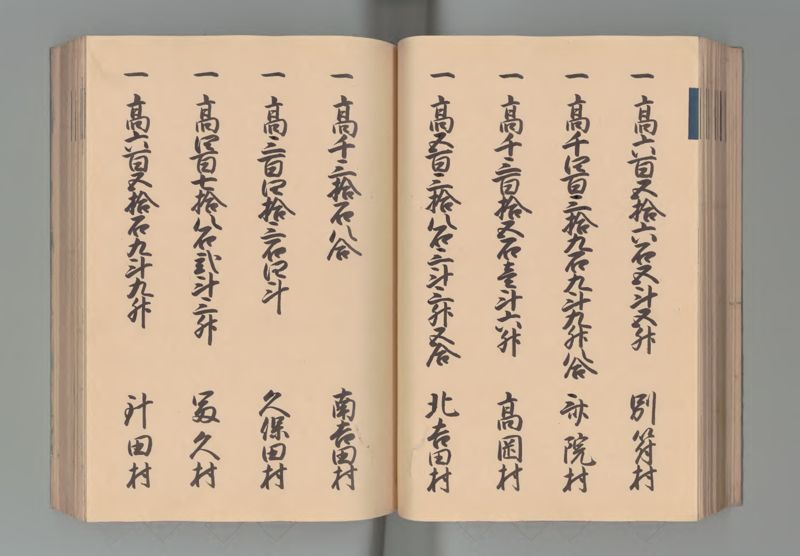 一 高六百五拾六石五斗五升 別符村
一 高千四百三拾九石九斗九升八合 斎院村
一 高千三百拾五石壱斗六升 高岡村
一 高五百三拾八石三斗三升五合 北吉田村
一 高千三拾石八合 南吉田村
一 高三百四拾三石四斗 久保田村
一 高四百七拾八石弐斗三升 富久村
一 高六百五拾石九斗九升 針田村